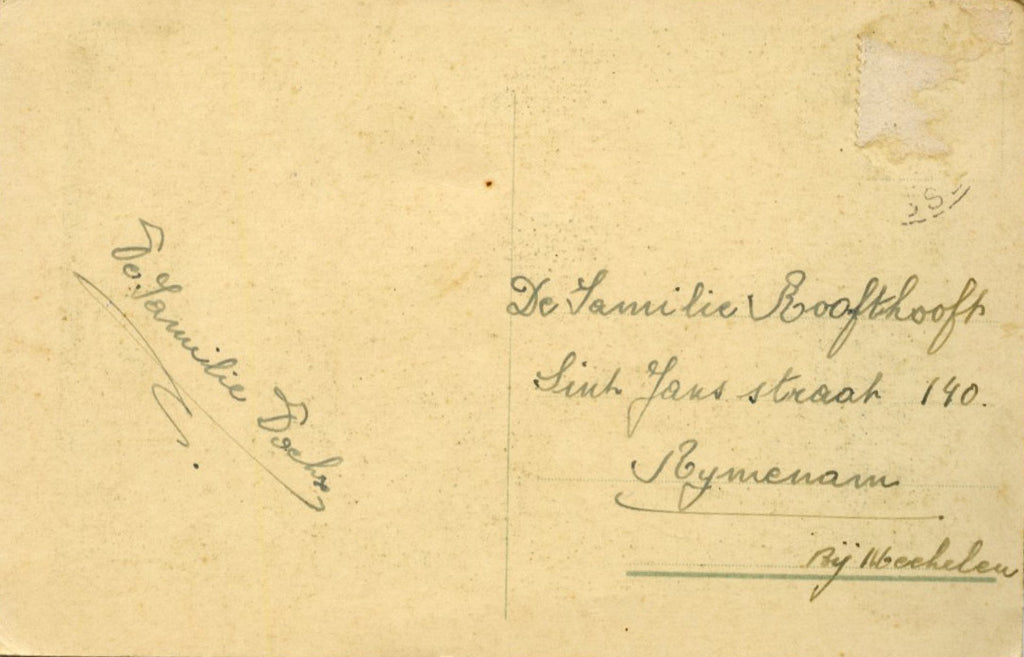 De Familie
De Familie Roofthooft
Sint Jans straat 140.
Rymenam
Bij Mechelen